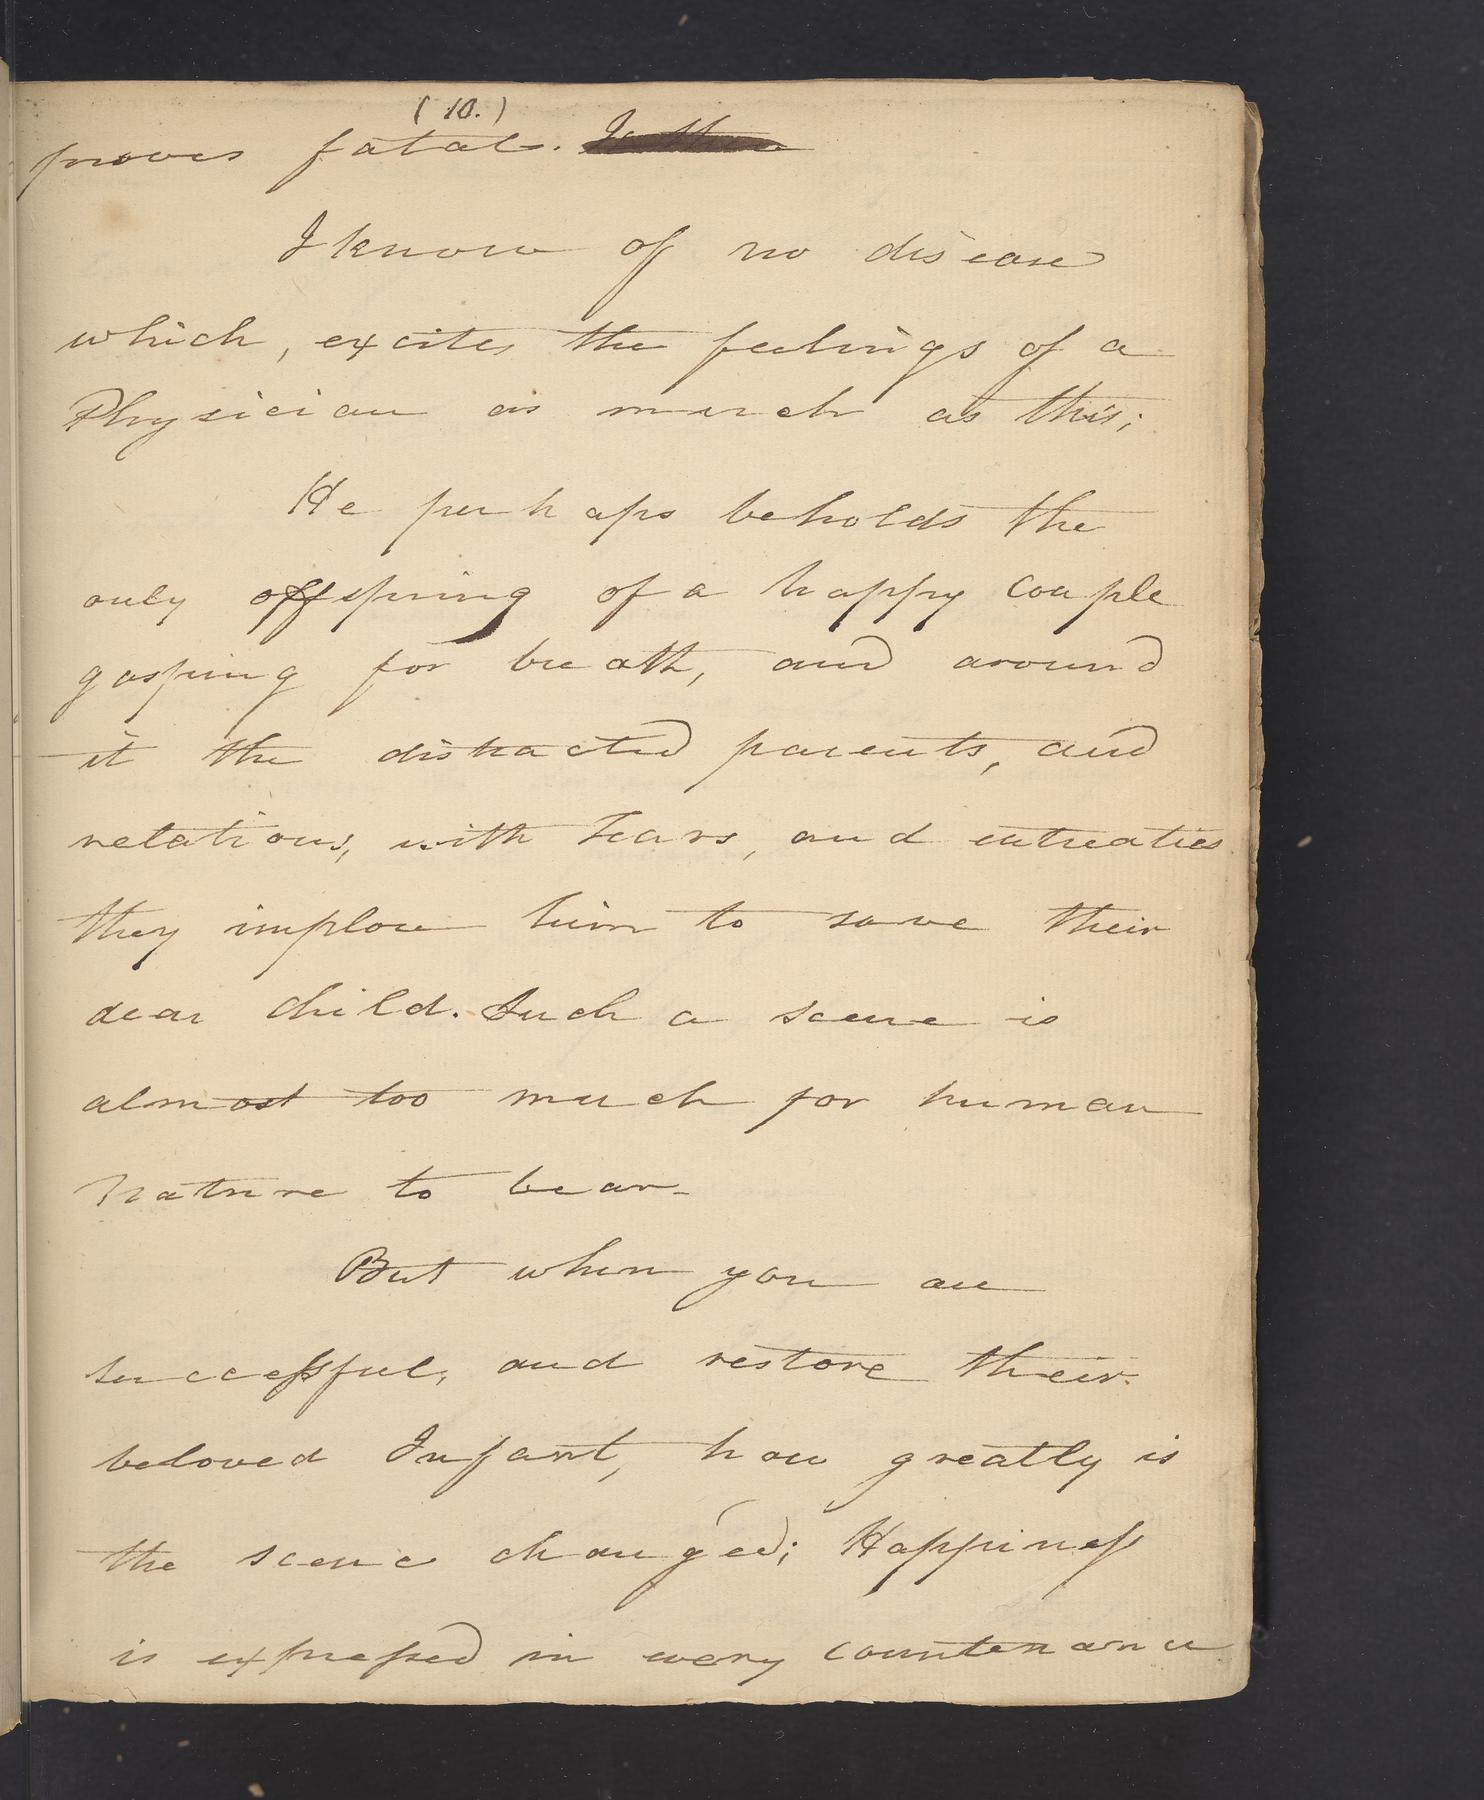 (10.)
proves fatal.
I know of no disease
which, excites the feelings of a
Physician as much as this;
He perhaps beholds the
only offspring of a happy couple
gasping for breath, and around
it the distracted parents, and
relations, with Tears, and entreaties
they implore him to save their
dear child. Such a scene is
almost too much for human
Nature to bear-
But when you are
successful, and restore their
beloved Infant, how greatly is
the scene changed; Happiness
is expressed in every countenance